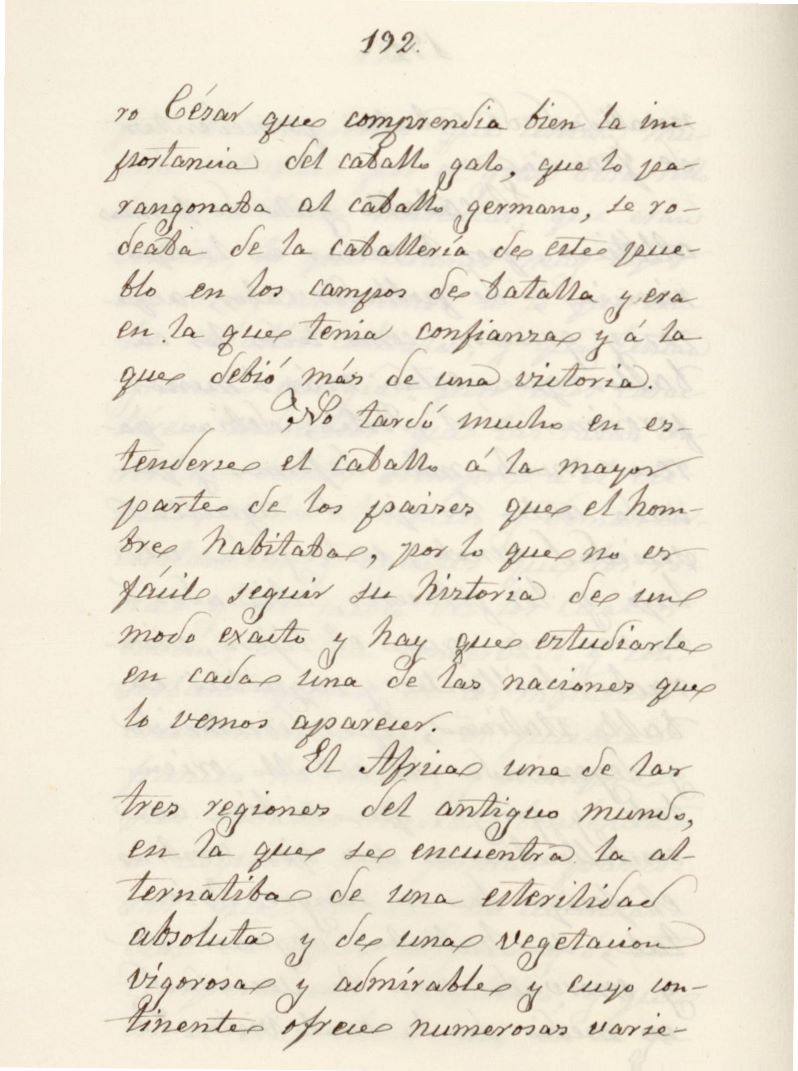 192.
ro César que comprendia bien la im-
portancia del caballo galo, que lo pa-
rangonaba al caballo germano, se ro-
deaba de la caballería de este pue-
blo en los campos de batalla y era
en la que tenia confianza y á la
que debió más de una victoria.
No tardó mucho en es-
tenderse el caballo á la mayor
parte de los paises que el hom-
bre habitaba, por lo que no es
fácil seguir su historia de un
modo exacto y hay que estudiarle
en cada una de las naciones que
lo vemos aparecer.
El Africa una de las
tres regiones del antiguo mundo,
en la que se encuentra la al-
ternatiba de una esterilidad
absoluta y de una vegetacion
vígorosa y admírable y cuyo con-
tinente ofrece numerosas varie-